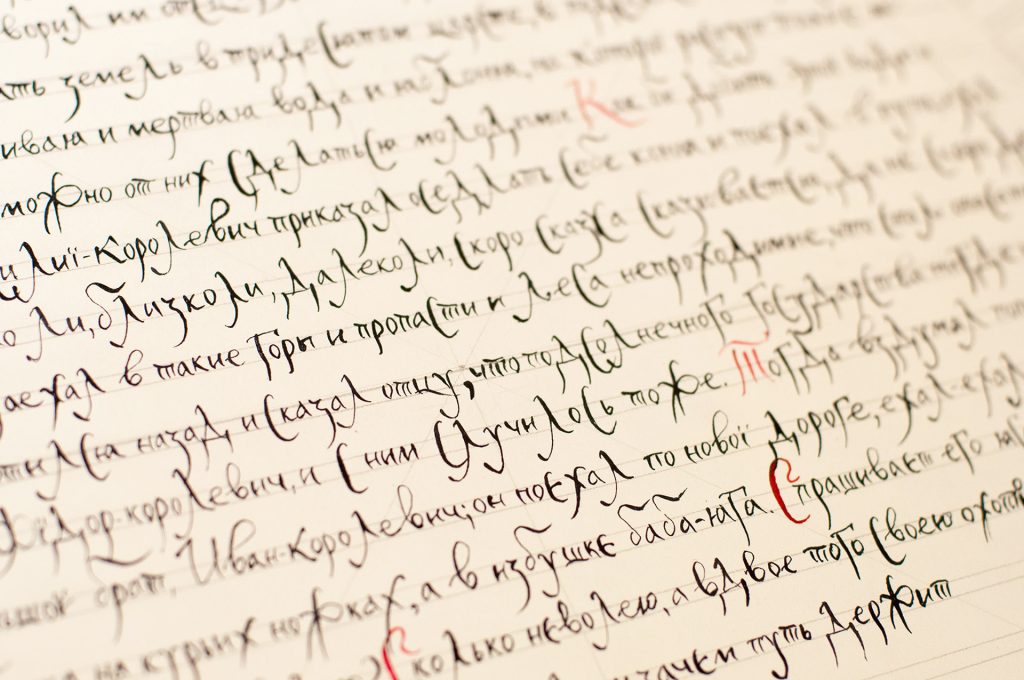 ворил им от
ать земель в тридесятом царстве, в
ивая и мертвая вода и яблоня, на которой растут такие
можно от них сделаться молодыми. Как
илиї-королевич приказал оседлать себе коня и поехал
ко ли, близко ли, далеко ли, скоро сказка сказывается, да не скоро
аехал в такие горы и пропасти и леса непроходимые, что
отился назад, и сказал отцу, что подсолнечного государства
Ѳедор-королевич, и с ним случилось тоже. Тогда вздумал
ьшой брат, Иван-королевич; он поехал по новой дороге, ехал-ехал
на курьих ножках, а в избушке баба-яга. Спрашивает его
Сколько неволею, а вдвое того своею охотою
зачем путь держит